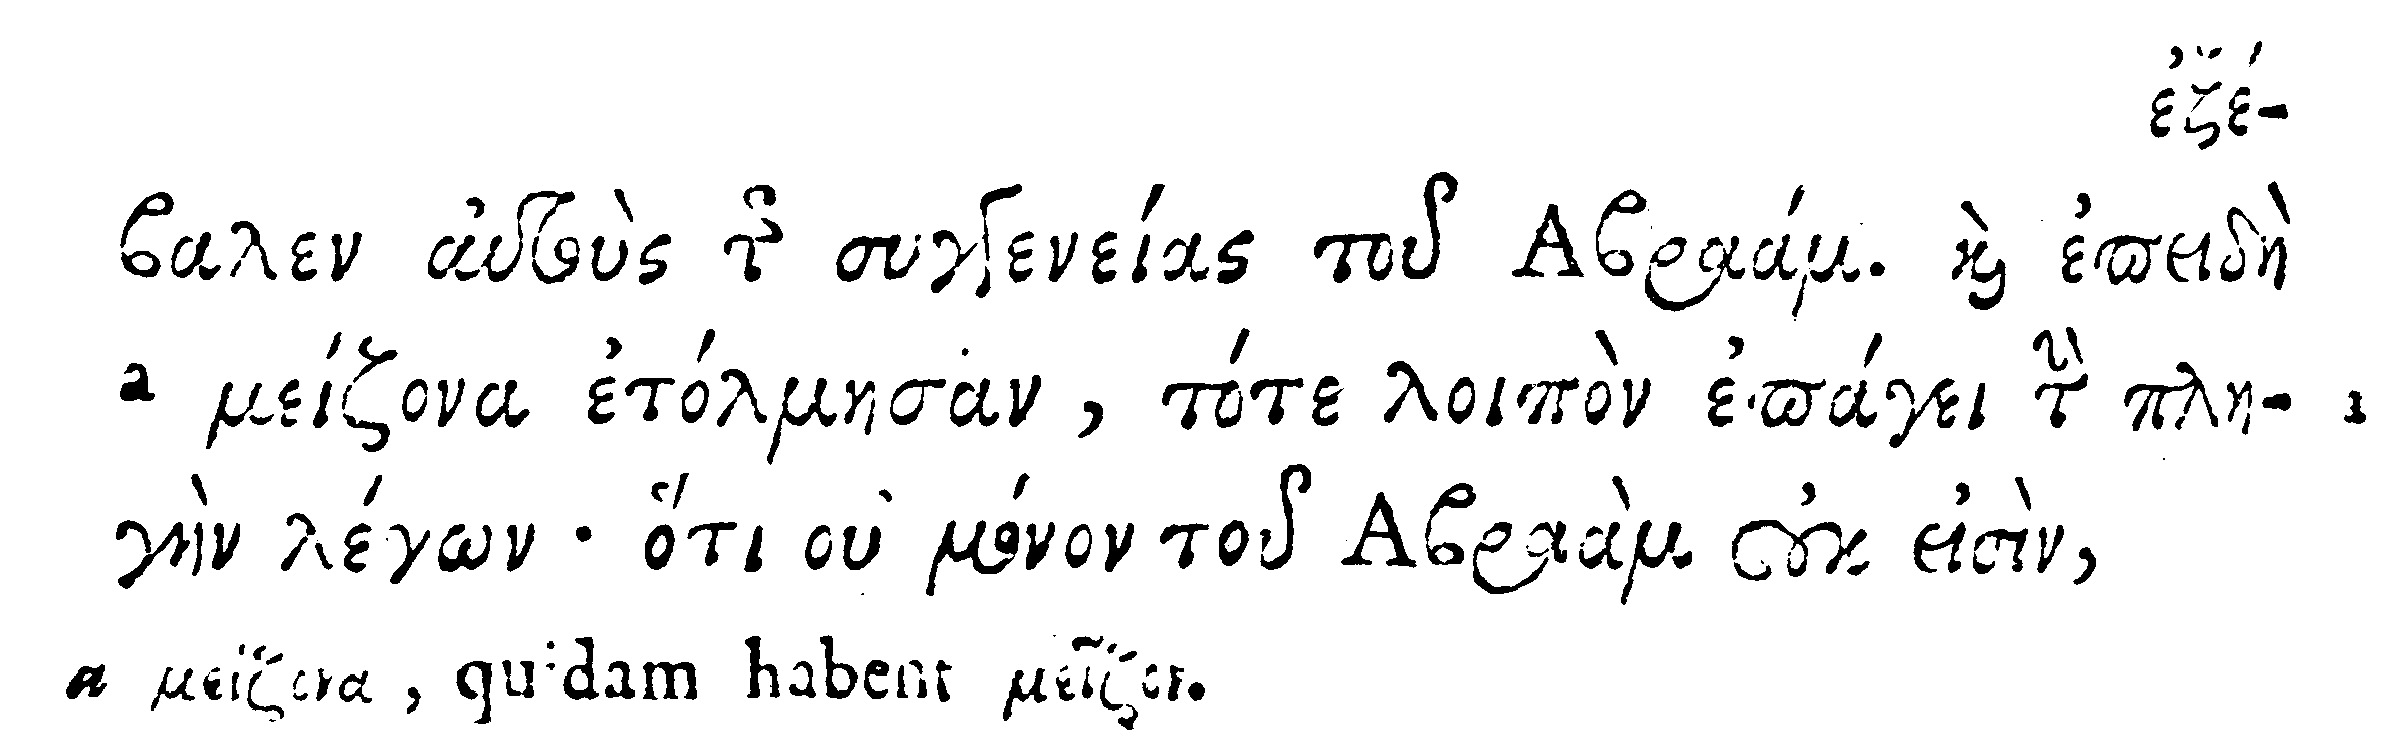 ἐξέ-
βαλεν αὐτοὺς τῆς συγγενείας τοῦ Ἀβραάμ. καὶ ἐπειδὴ
a μείζονα ἐτόλμησαν, τότε λοιπὸν ἐπάγει τὴν πλη-
γὴν λέγων · ὅτι οὐ μόνον τοῦ Ἀβραὰμ οὐκ εἰσὶν,
a μείζονα, quidam habent μεῖζον.